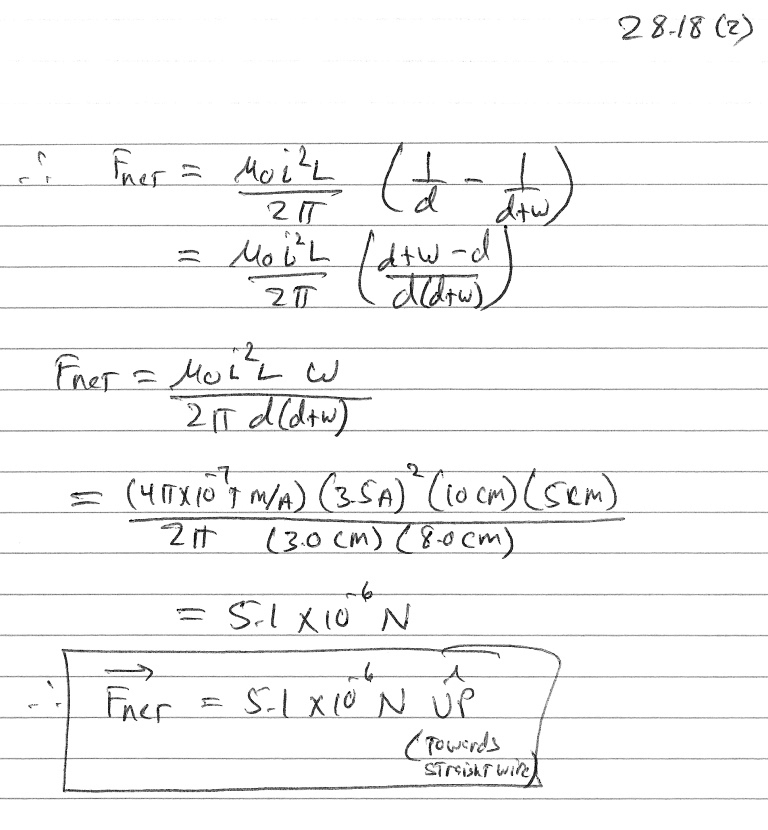 28.18 (2)
∴ Fnet = μ0i²L / 2π (1/d - 1/d+w)
= μ0i²L / 2π (d+w-d / d(d+w))
Fnet = μ0i²L w / 2π d(d+w)
= (4π×10⁻⁷ T m/A) (3.5A)² (10 cm) (5 cm) / 2π (3.0 cm) (8.0 cm)
= 5.1 × 10⁻⁶ N
∴ F⃗net = 5.1 × 10⁻⁶ N UP^
(Towards
straight wire)